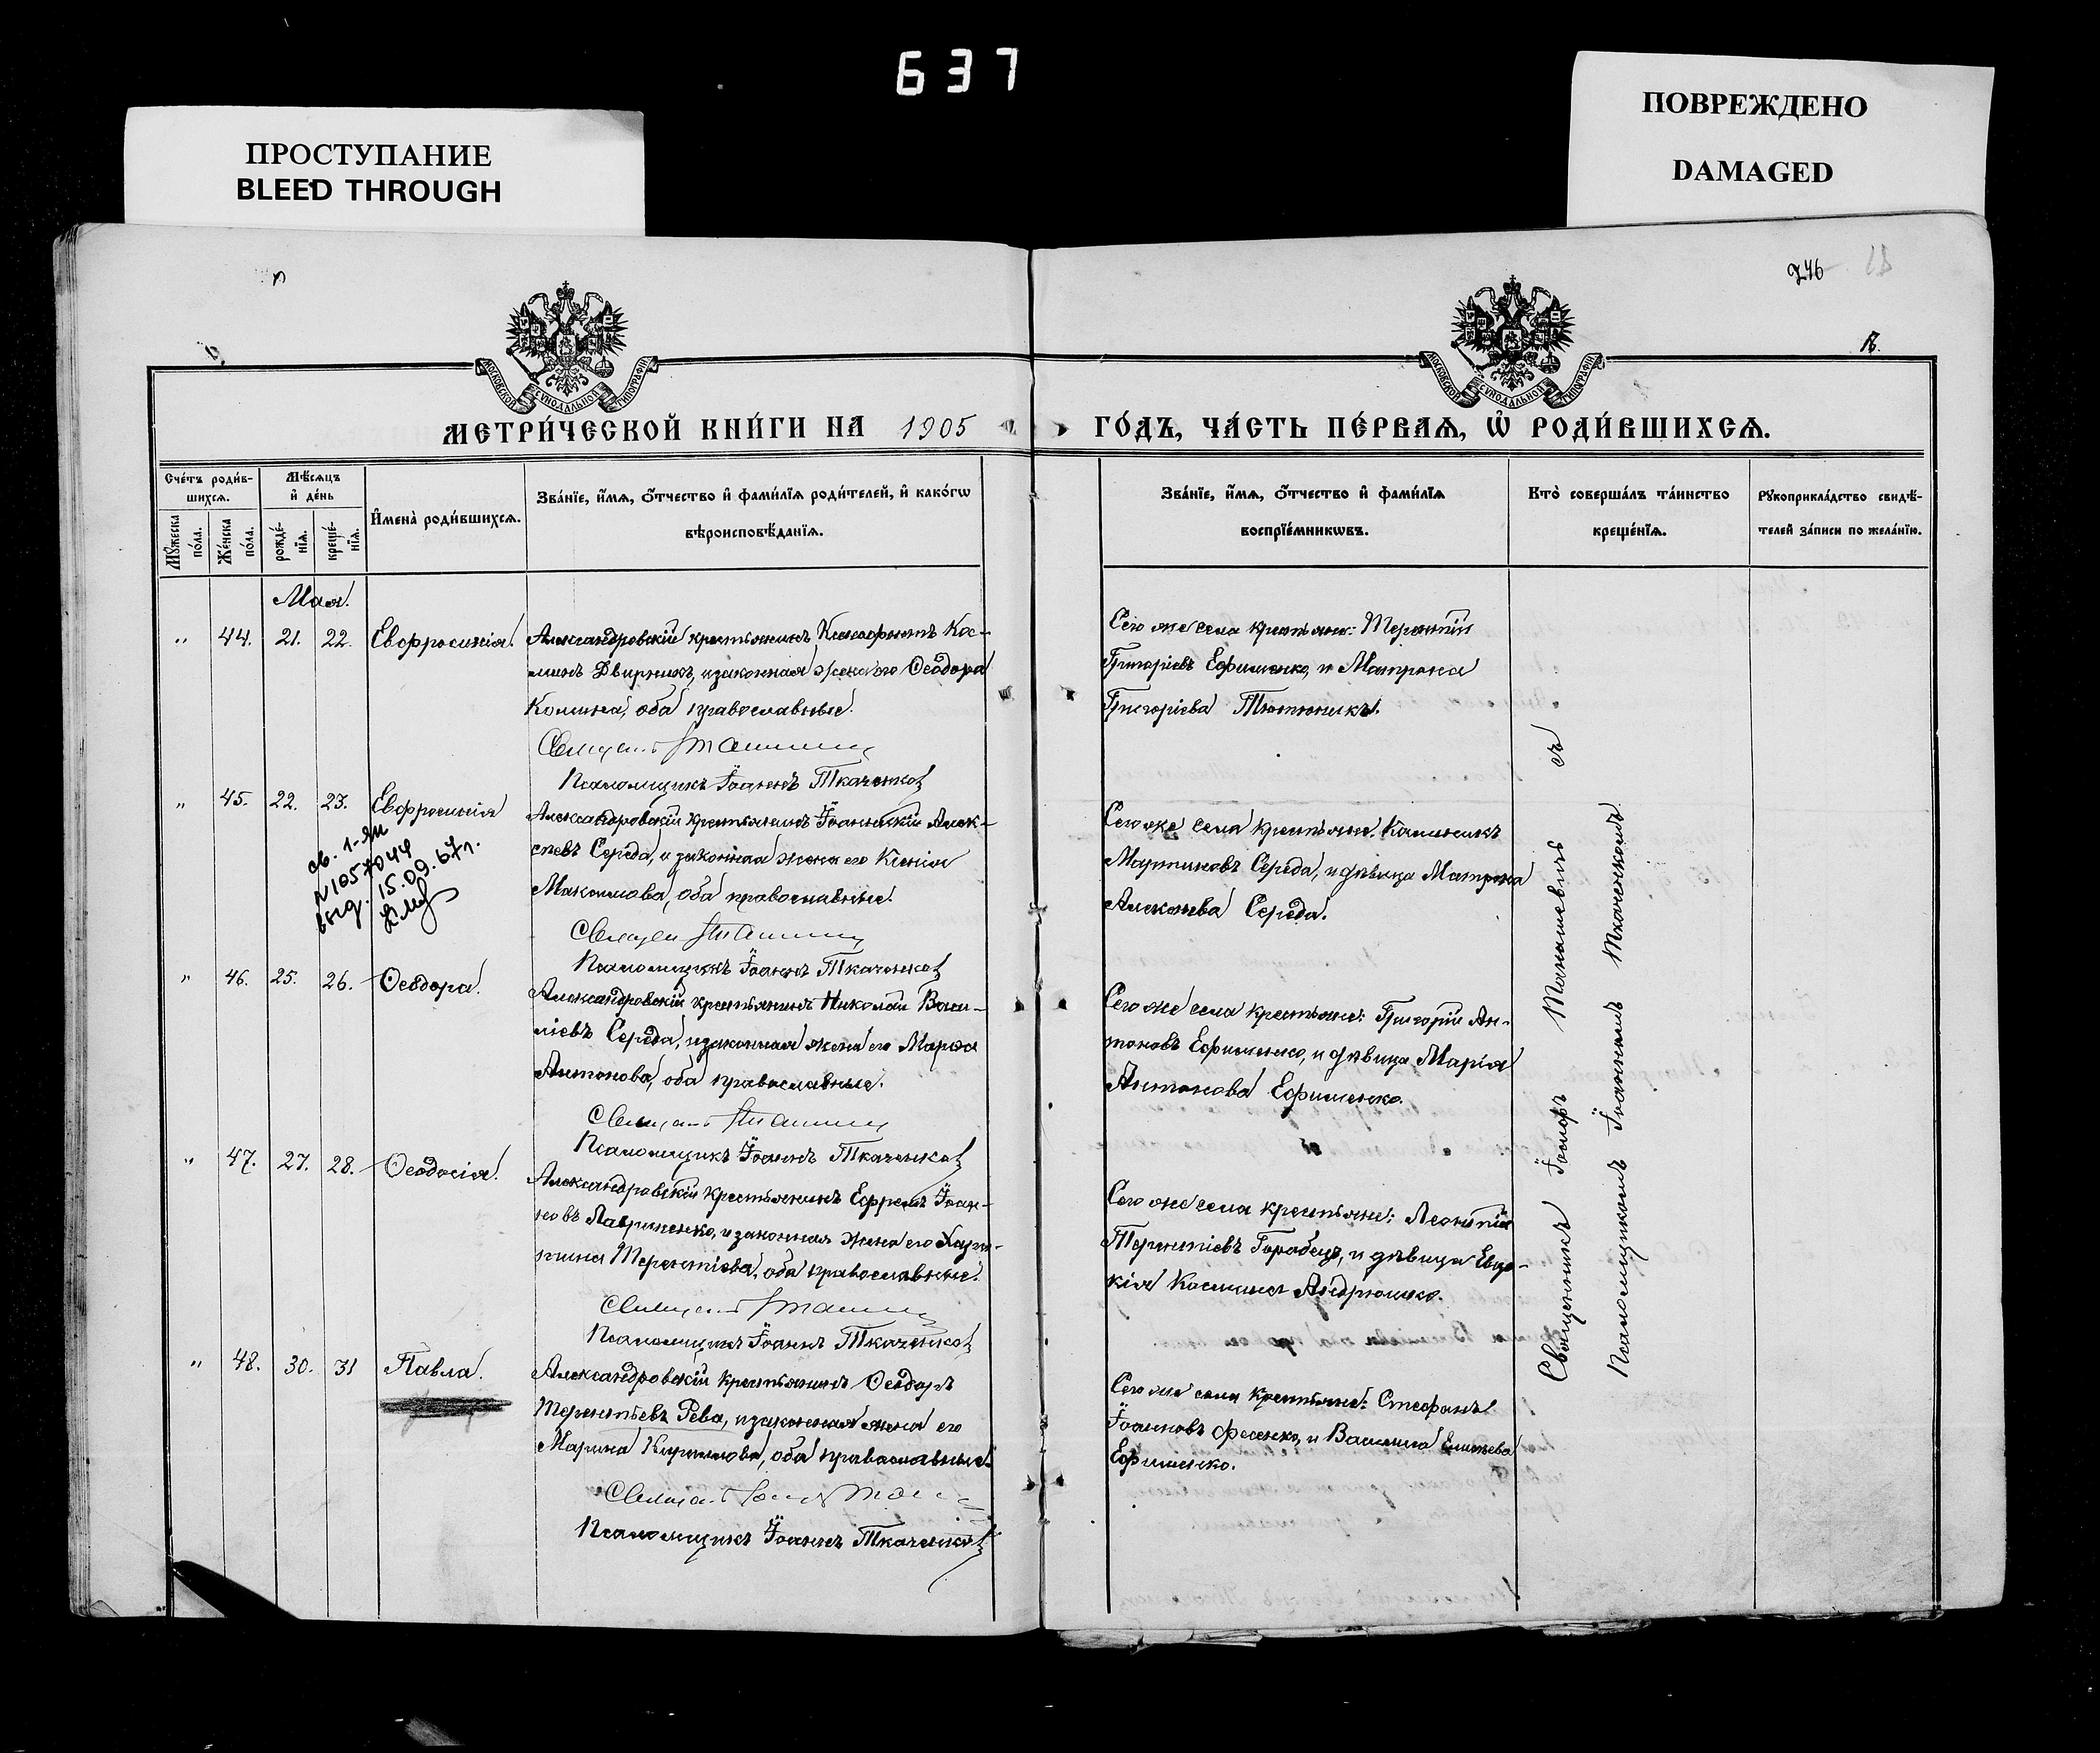 637
ПРОСТУПАНИЕ
BLEED THROUGH
ПОВРЕЖДЕНО
DAMAGED
746
МОСКОВСКОЙ СУНОДАЛЬНОЙ ТИПОГРАФІИ
МОСКОВСКОЙ СУНОДАЛЬНОЙ ТИПОГРАФІИ
МЕТРИ́ЧЕСКОЙ КНИ́ГИ НА 1905
ГО́ДЪ, ЧА́СТЬ ПЕ́РВАѦ, Ѡ҆ РОДИ́ВШИХСѦ.
Сче́тъ роди́в-
шихсѧ.
Мꙋ́жеска
по́ла.
Же́нска
по́ла.
Мѣ́сѧцъ
и҆ де́нь
рожде́-
нїѧ.
креще́-
нїѧ.
И҆мена̀ роди́вшихсѧ.
Зва́нїе, и҆́мѧ, ѻ҆́тчество и҆ фами́лїѧ роди́телей, и҆ како́гѡ
вѣроисповѣ́данїѧ.
Зва́нїе, и҆́мѧ, ѻ҆́тчество и҆ фами́лїѧ
воспрїе́мникѡвъ.
Кто̀ соверша́лъ та́инство
креще́нїѧ.
Рꙋкоприкла́дство свидѣ́-
телей за́писи по жела́нїю.
Мая.
" 44. 21. 22. Евфросинія.
Александровскій крестьянинъ Ксенофонтъ Кос-
минъ Двирникъ, и законная жена его Ѳеодора
Комина, оба православные.
Псаломщикъ Іоаннъ Ткаченко
Сего же села крестьяне: Терентій
Григоріевъ Ефименко, и Матрона
Григоріева Тютюникъ.
" 45. 22. 23. Евфросинія
св. 1-ЯИ
N1057044
выд. 15.09.67г.
Александровскій крестьянинъ Іоанникій Алек-
сѣевъ Середа, и законная жена его Ксенія
Максимова, оба православные.
Псаломщикъ Іоаннъ Ткаченко
Сего же села крестьяне: Калиникъ
Мартиновъ Середа, и дѣвица Матрона
Алексѣева Середа.
" 46. 25. 26. Ѳеодора.
Александровскій крестьянинъ Николай Васи-
ліевъ Середа, и законная жена его Марѳа
Антонова, оба православные.
Псаломщикъ Іоаннъ Ткаченко
Сего же села крестьяне: Григорій Ан-
тоновъ Ефименко, и дѣвица Марія
Антонова Ефименко.
" 47. 27. 28. Ѳеодосія.
Александровскій крестьянинъ Ефремъ Іоан-
новъ Лавриненко, и законная жена его Хари-
тина Терентіева, оба православные.
Псаломщикъ Іоаннъ Ткаченко
Сего же села крестьяне: Леонтій
Терентіевъ Горобецъ, и дѣвица Евдо-
кія Космина Андрюшко.
" 48. 30. 31 Павла.
Александровскій крестьянинъ Ѳеодоръ
Терентьевъ Рева, и законная жена его
Марина Кириллова, оба православные.
Псаломщикъ Іоаннъ Ткаченко
Сего же села крестьяне: Стефанъ
Іоанновъ Фесенко, и Василиса
Ефименко.
Священникъ Іосифъ съ
Псаломщикомъ Іоанномъ Ткаченкомъ